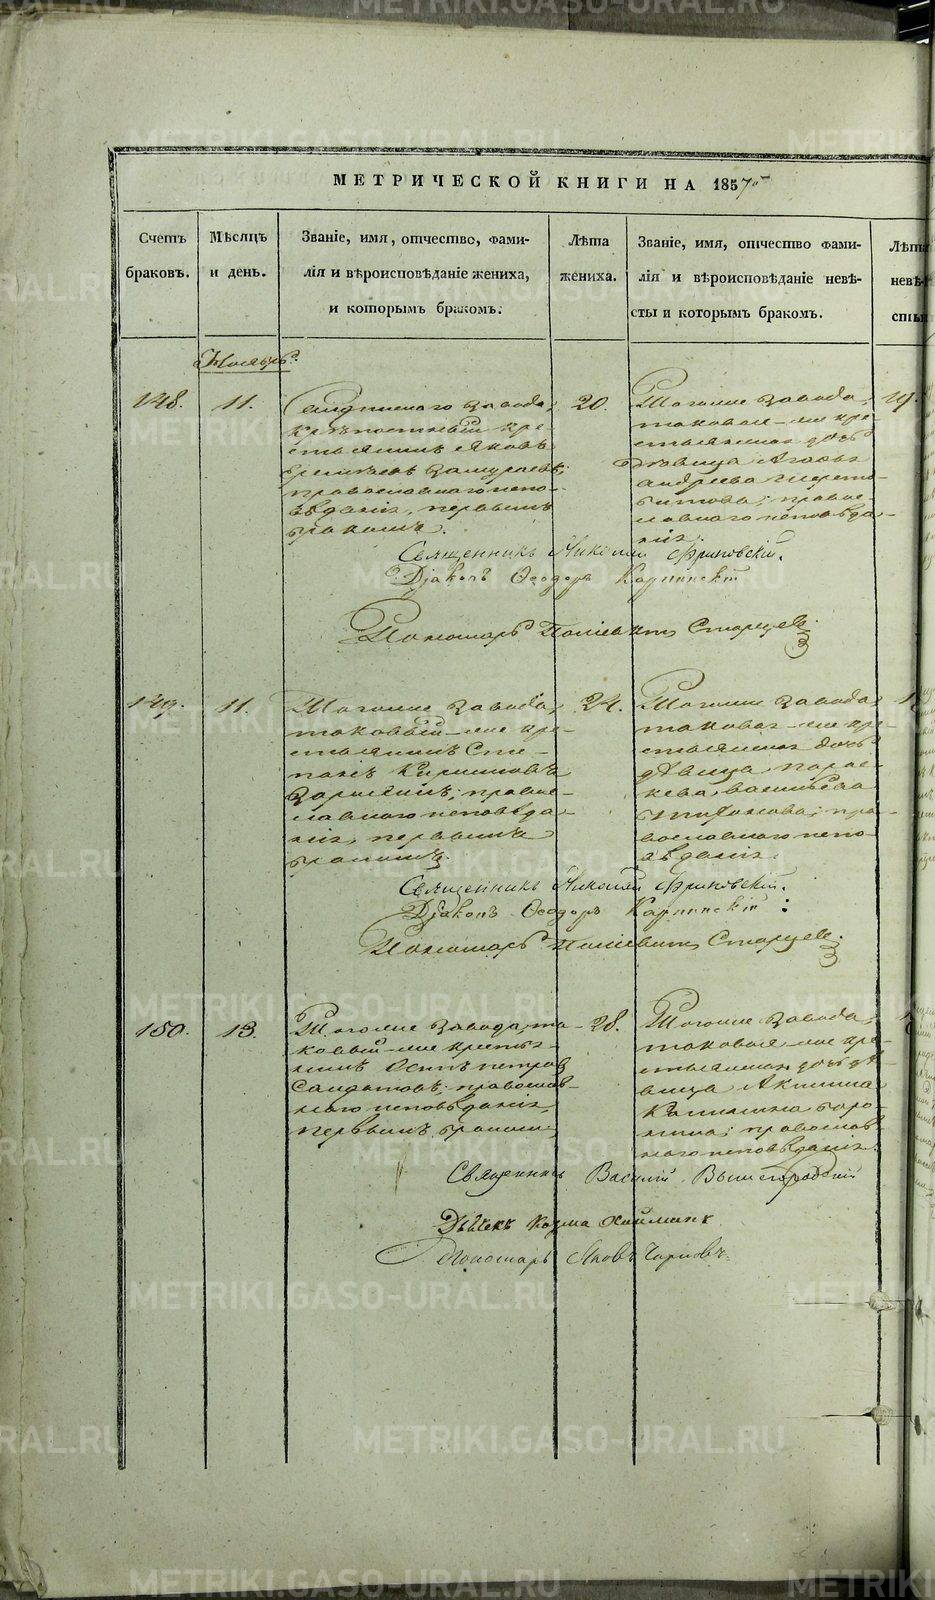 МЕТРИЧЕСКОЙ КНИГИ НА 1857
Счетъ браковъ.
Мѣсяцъ и день.
Званіе, имя, отчество, фами-
лія и вѣроисповѣданіе жениха,
и которымъ бракомъ.
Лѣта жениха.
Званіе, имя, отчество фами-
лія и вѣроисповѣданіе невѣ-
сты и которымъ бракомъ.
Лѣта невѣ-
сты
Ноябрь.
148.
11.
завода,
крѣпостный кре-
стьянинъ Яковъ
православнаго испо-
вѣданія, первымъ
бракомъ.
20.
Тогоже завода,
таковая-же кре-
стьянская дочь
дѣвица Агафья
Андреева
битова; правос-
лавнаго исповѣда-
нія.
19.
Священникъ Николай Фриновскій.
Діаконъ Ѳеодоръ Карпинскій
Пономарь Старцевъ.
149.
11.
Тогоже завода,
таковый-же кре-
стьянинъ Сте-
панъ
православнаго исповѣда-
нія, первымъ
бракомъ.
24.
Тогоже завода
таковая-же кре-
стьянская дочь
дѣвица Парас-
кева Васильева
пра-
вославнаго испо-
вѣданія.
Священникъ Николай Фриновскій.
Діаконъ Ѳеодоръ Карпинскій:
Пономарь Старцевъ.
150.
13.
Тогоже завода, та-
ковый-же крестья-
нинъ Осипъ Петровъ
Солдатовъ; православ-
наго исповѣданія,
первымъ бракомъ,
28.
Тогоже завода,
таковая-же кре-
стьянская дочь дѣ-
вица Акилина
православ-
наго исповѣданія.
Священникъ Василій Вышегородскій
Дьячекъ Козма
Пономарь Яковъ
METRIKI.GASO-URAL.RU